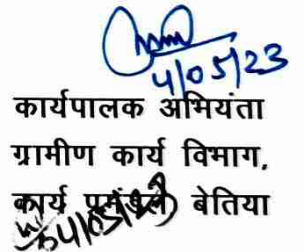 4/05/23
कार्यपालक अभियंता
ग्रामीण कार्य विभाग,
कार्य प्रमंडल बेतिया
04/05/23